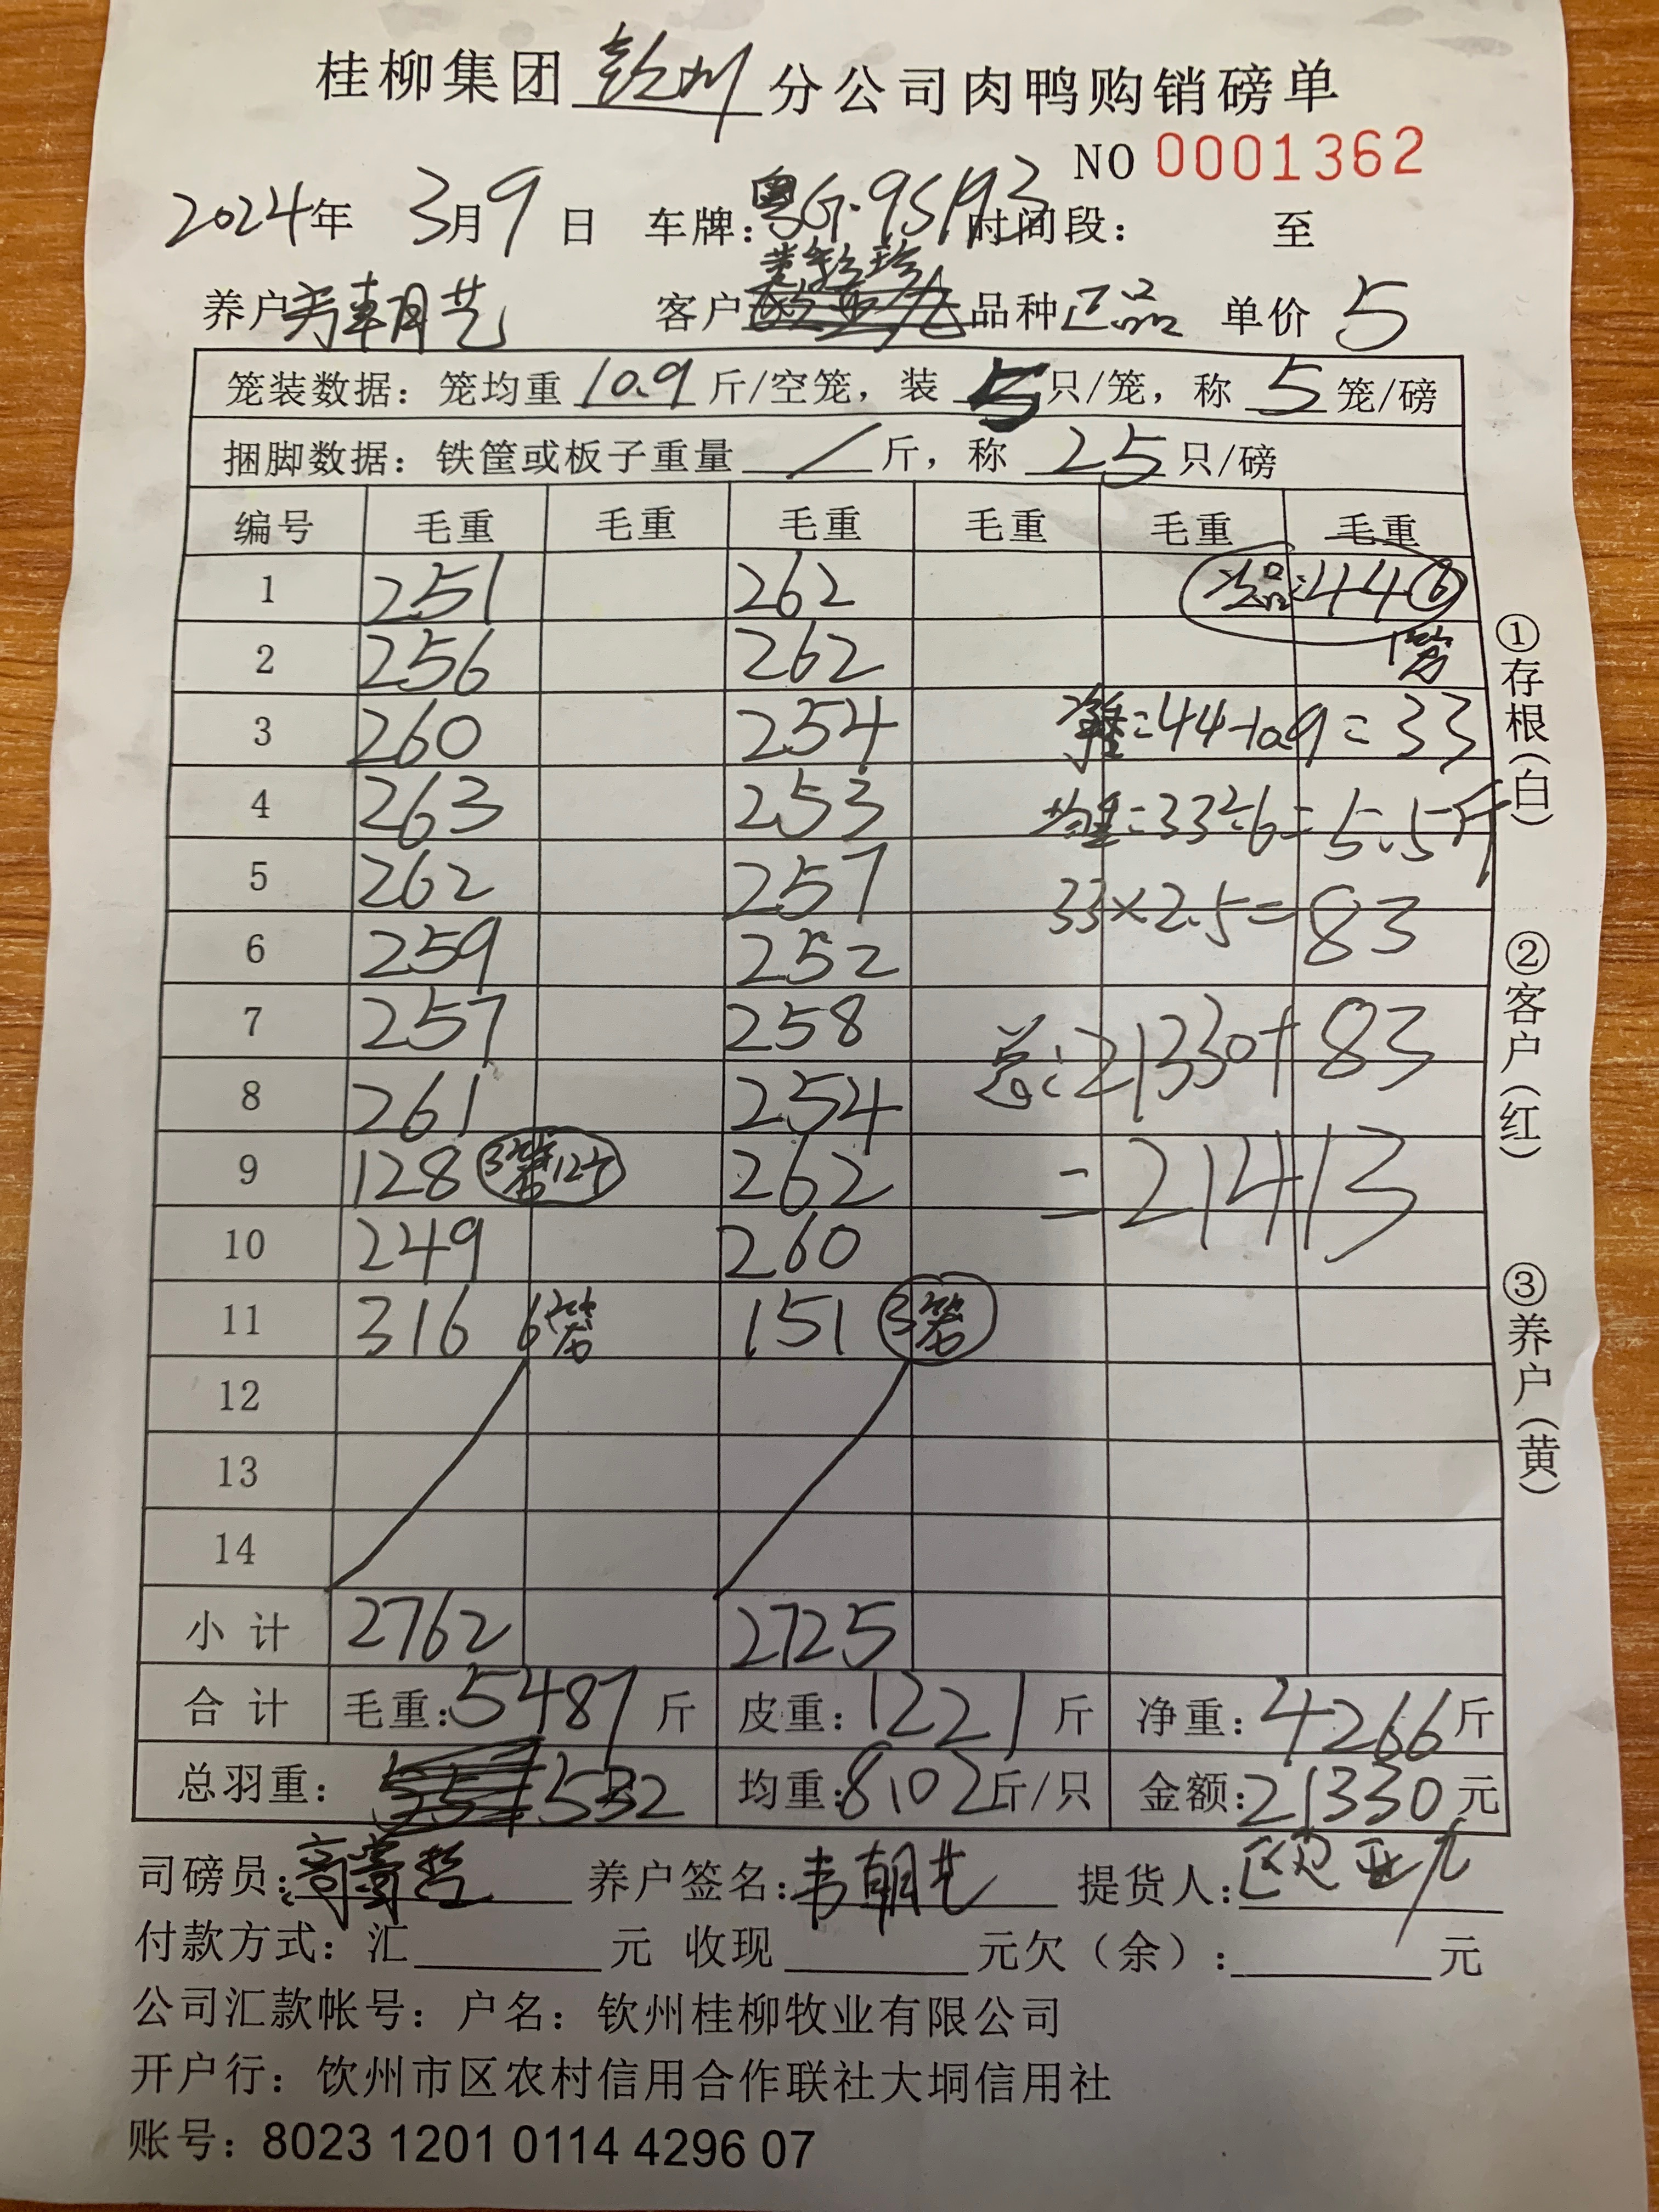 桂柳集团 钦州 分公司肉鸭购销磅单
NO 0001362
2024年 3月9日 车牌:粤G·95193 时间段: 至
养户 韦朝艺 客户 品种 正品 单价 5
笼装数据：笼均重 10.9 斤/空笼，装 5 只/笼，称 5 笼/磅
捆脚数据：铁筐或板子重量 / 斤，称 25 只/磅
编号 毛重 毛重 毛重 毛重 毛重 毛重
1 251 262 次品:44 ⑥
2 256 262 1笼
3 260 254 净重:44-10.9=33
4 263 253 均重:33÷6=5.5斤
5 262 257 33×2.5=83
6 259 252
7 257 258 总:21330+83
8 261 254
9 128 3笼12个 262 =21413
10 249 260
11 316 6笼 151 3笼
12
13
14
小计 2762 2725
合计 毛重:5487斤 皮重:1221斤 净重:4266斤
总羽重: 532 均重:8.02斤/只 金额:21330元
司磅员: 养户签名:韦朝艺 提货人:区亚九
付款方式：汇 元 收现 元欠（余）: 元
公司汇款帐号：户名：钦州桂柳牧业有限公司
开户行：钦州市区农村信用合作联社大垌信用社
账号：8023 1201 0114 4296 07
①存根(白)
②客户(红)
③养户(黄)